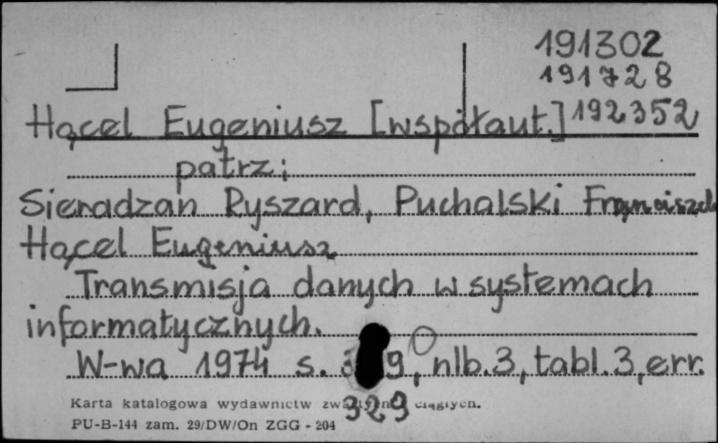 191302
191728
Hącel Eugeniusz [współaut.] 192352
patrz:
Sieradzan Ryszard, Puchalski Franciszek
Hącel Eugeniusz
Transmisja danych w systemach
informatycznych.
W-wa 1974 s. 9, nlb.3, tabl.3, err.
329
Karta katalogowa wydawnictw ciągłych.
PU-B-144 zam. 29/DW/On ZGG - 204